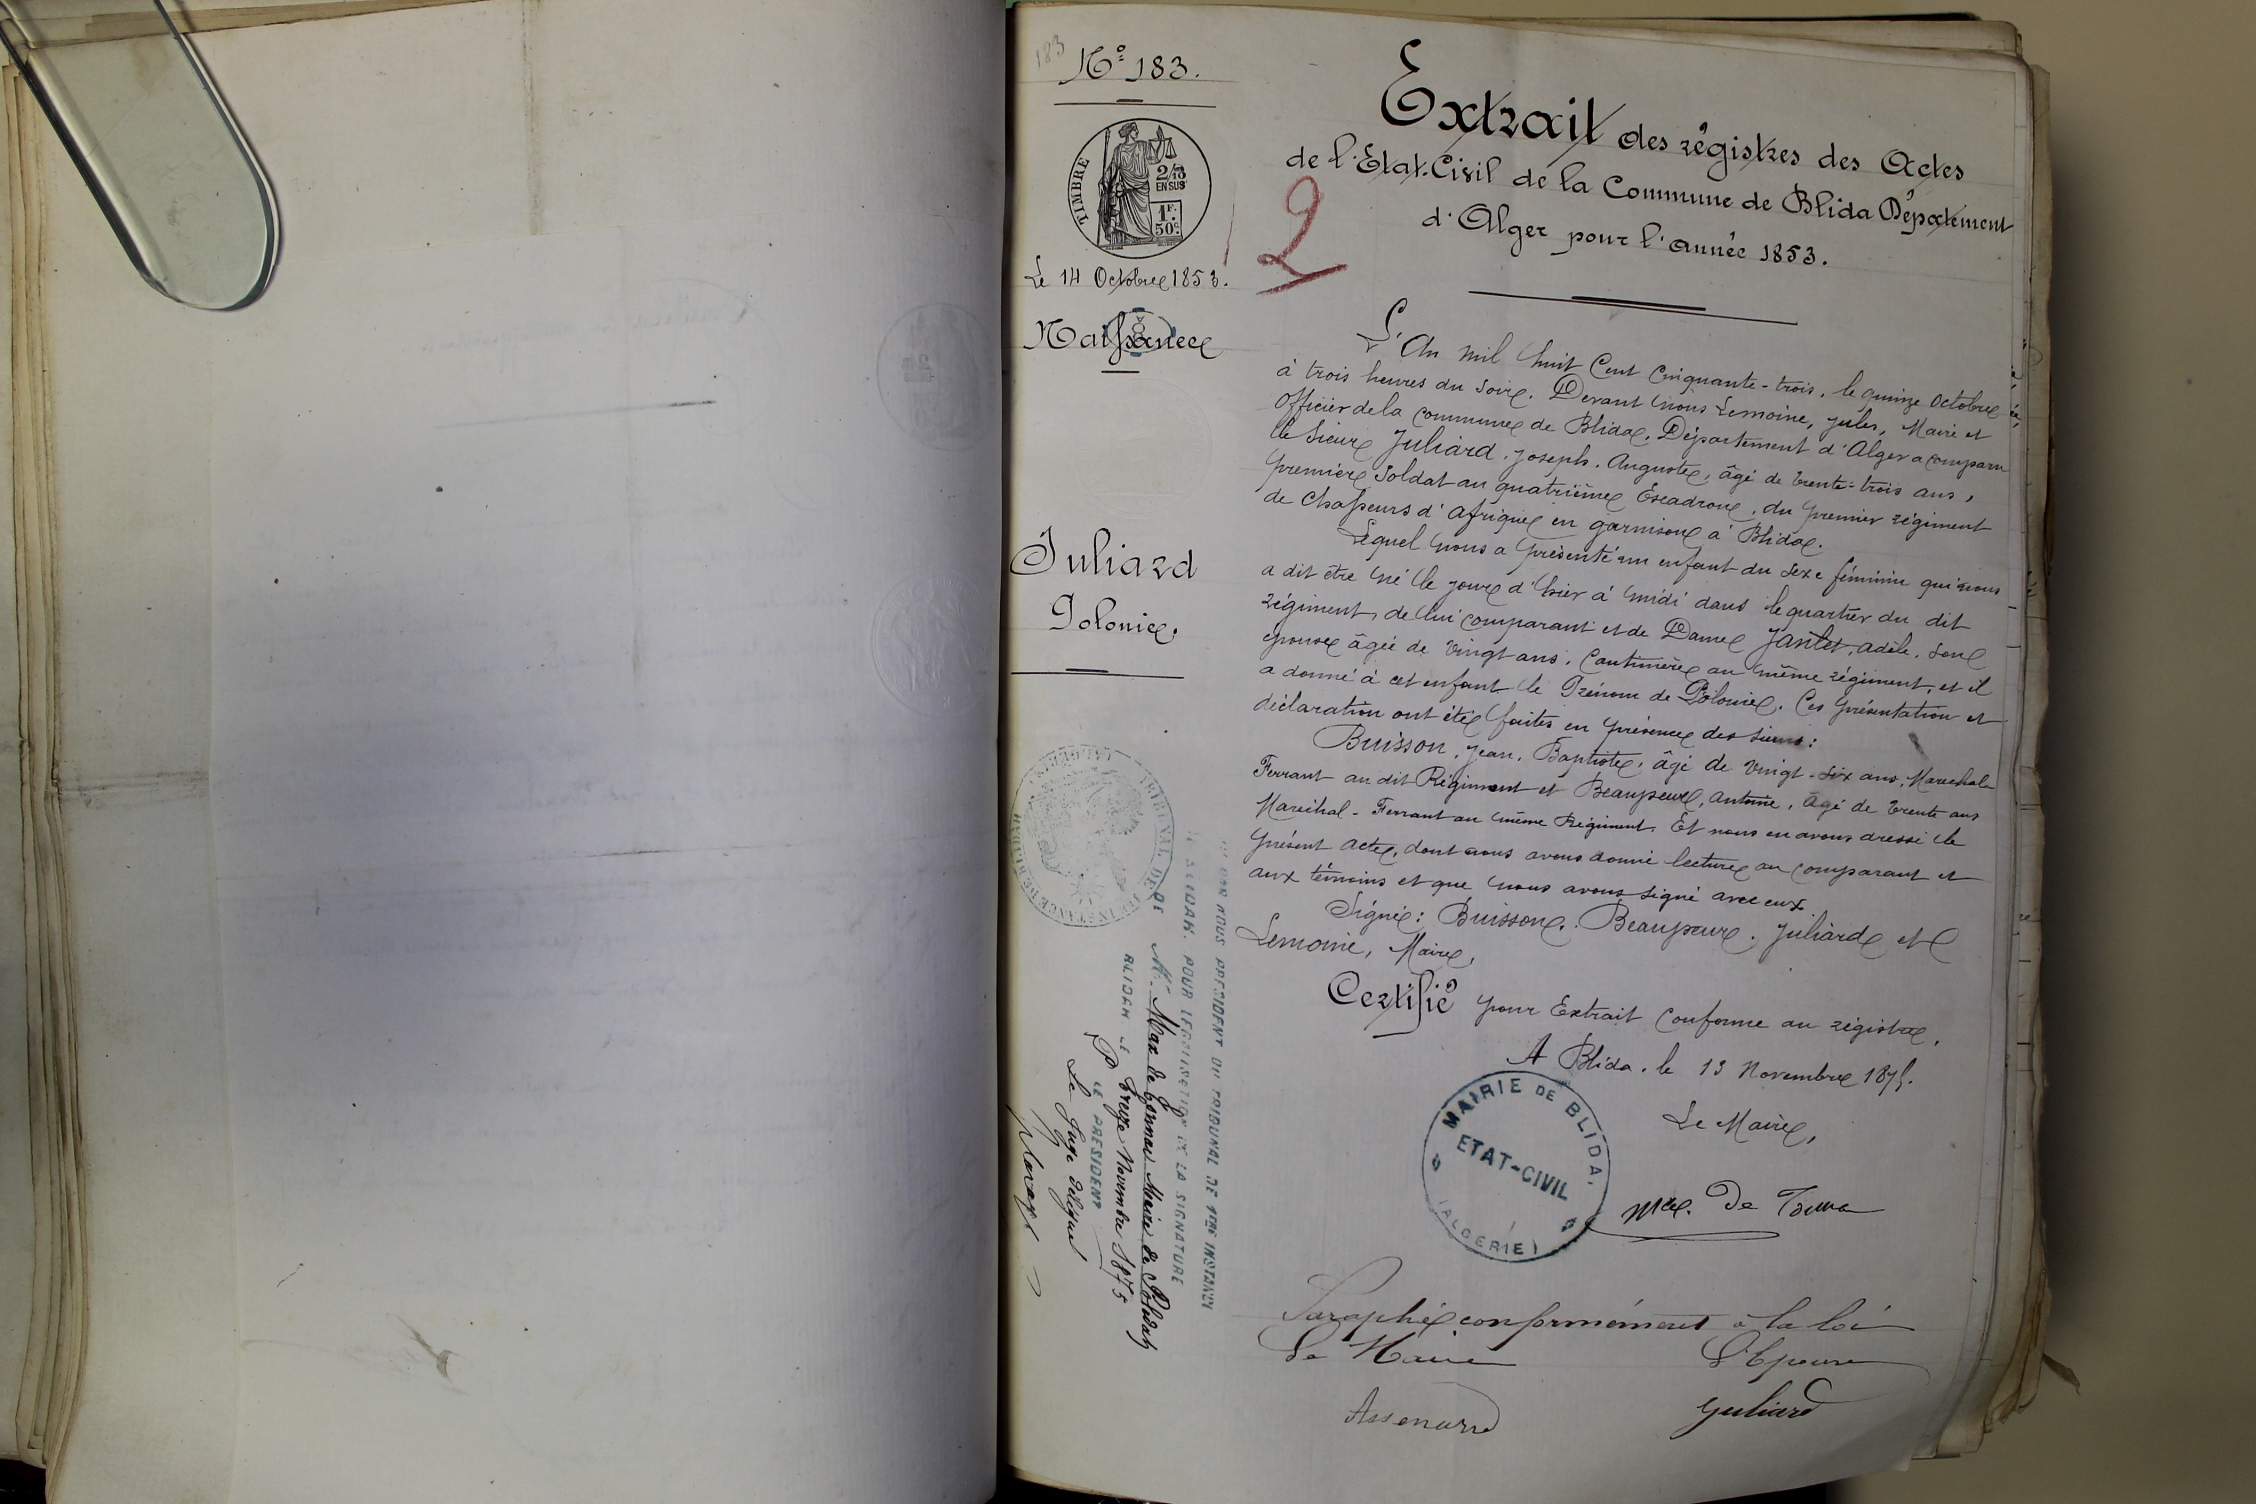 183
N° 183.
TIMBRE
2/10
EN SUS
1F.
50c.
Le 14 Octobre 1853.
Naissance
Juliard
Polonie.
Extrait des régistres des Actes
de l'Etat-Civil de la Commune de Blida Département
d'Alger pour l'année 1853.
2
L'An mil huit Cent Cinquante-trois, le quinze Octobre
à trois heures du soir. Devant nous Lemoine, Jules, Maire et
Officier de la commune de Blida, Département d'Alger a comparu
le Sieur Juliard, Joseph, Auguste, âgé de trente-trois ans,
premier Soldat au quatrième Escadron, du premier régiment
de Chasseurs d'Afrique en garnison à Blida.
Lequel nous a présenté un enfant du sexe féminin qui nous
a dit être né le jour d'hier à midi dans le quartier du dit
régiment, de lui comparant et de Dame Jantet, Adèle, son
épouse âgée de vingt ans, Cantinière au même régiment, et il
a donné à cet enfant le Prénom de Polonie. Ces présentation et
déclaration ont été faites en présence des sieurs :
Buisson, Jean, Baptiste, âgé de vingt-six ans, Marechal
Ferrant au dit Régiment et Beaupeur, Antoine, âgé de trente ans
Maréchal-Ferrant au même Régiment. Et nous en avons dressé le
présent acte, dont nous avons donné lecture au comparant et
aux témoins et que nous avons signé avec eux
Signé : Buisson. Beaupeur. Juliard et
Lemoine, Maire,
Certifié pour Extrait conforme au régistre,
A Blida, le 13 Novembre 1875.
Le Maire,
MAIRIE DE BLIDA,
ETAT-CIVIL
(ALGERIE)
Paraphé conformément à la loi
Le Maire L'Epouse
Juliard
TRIBUNAL DE
INSTANCE DE
NOUS PRESIDENT DU TRIBUNAL DE 1ERE INSTANCE
DE BLIDAH. POUR LEGALISATION DE LA SIGNATURE
DE Mr. Maire de Blidah
BLIDAH LE treize Novembre 1875
P LE PRESIDENT
Le Juge délégué